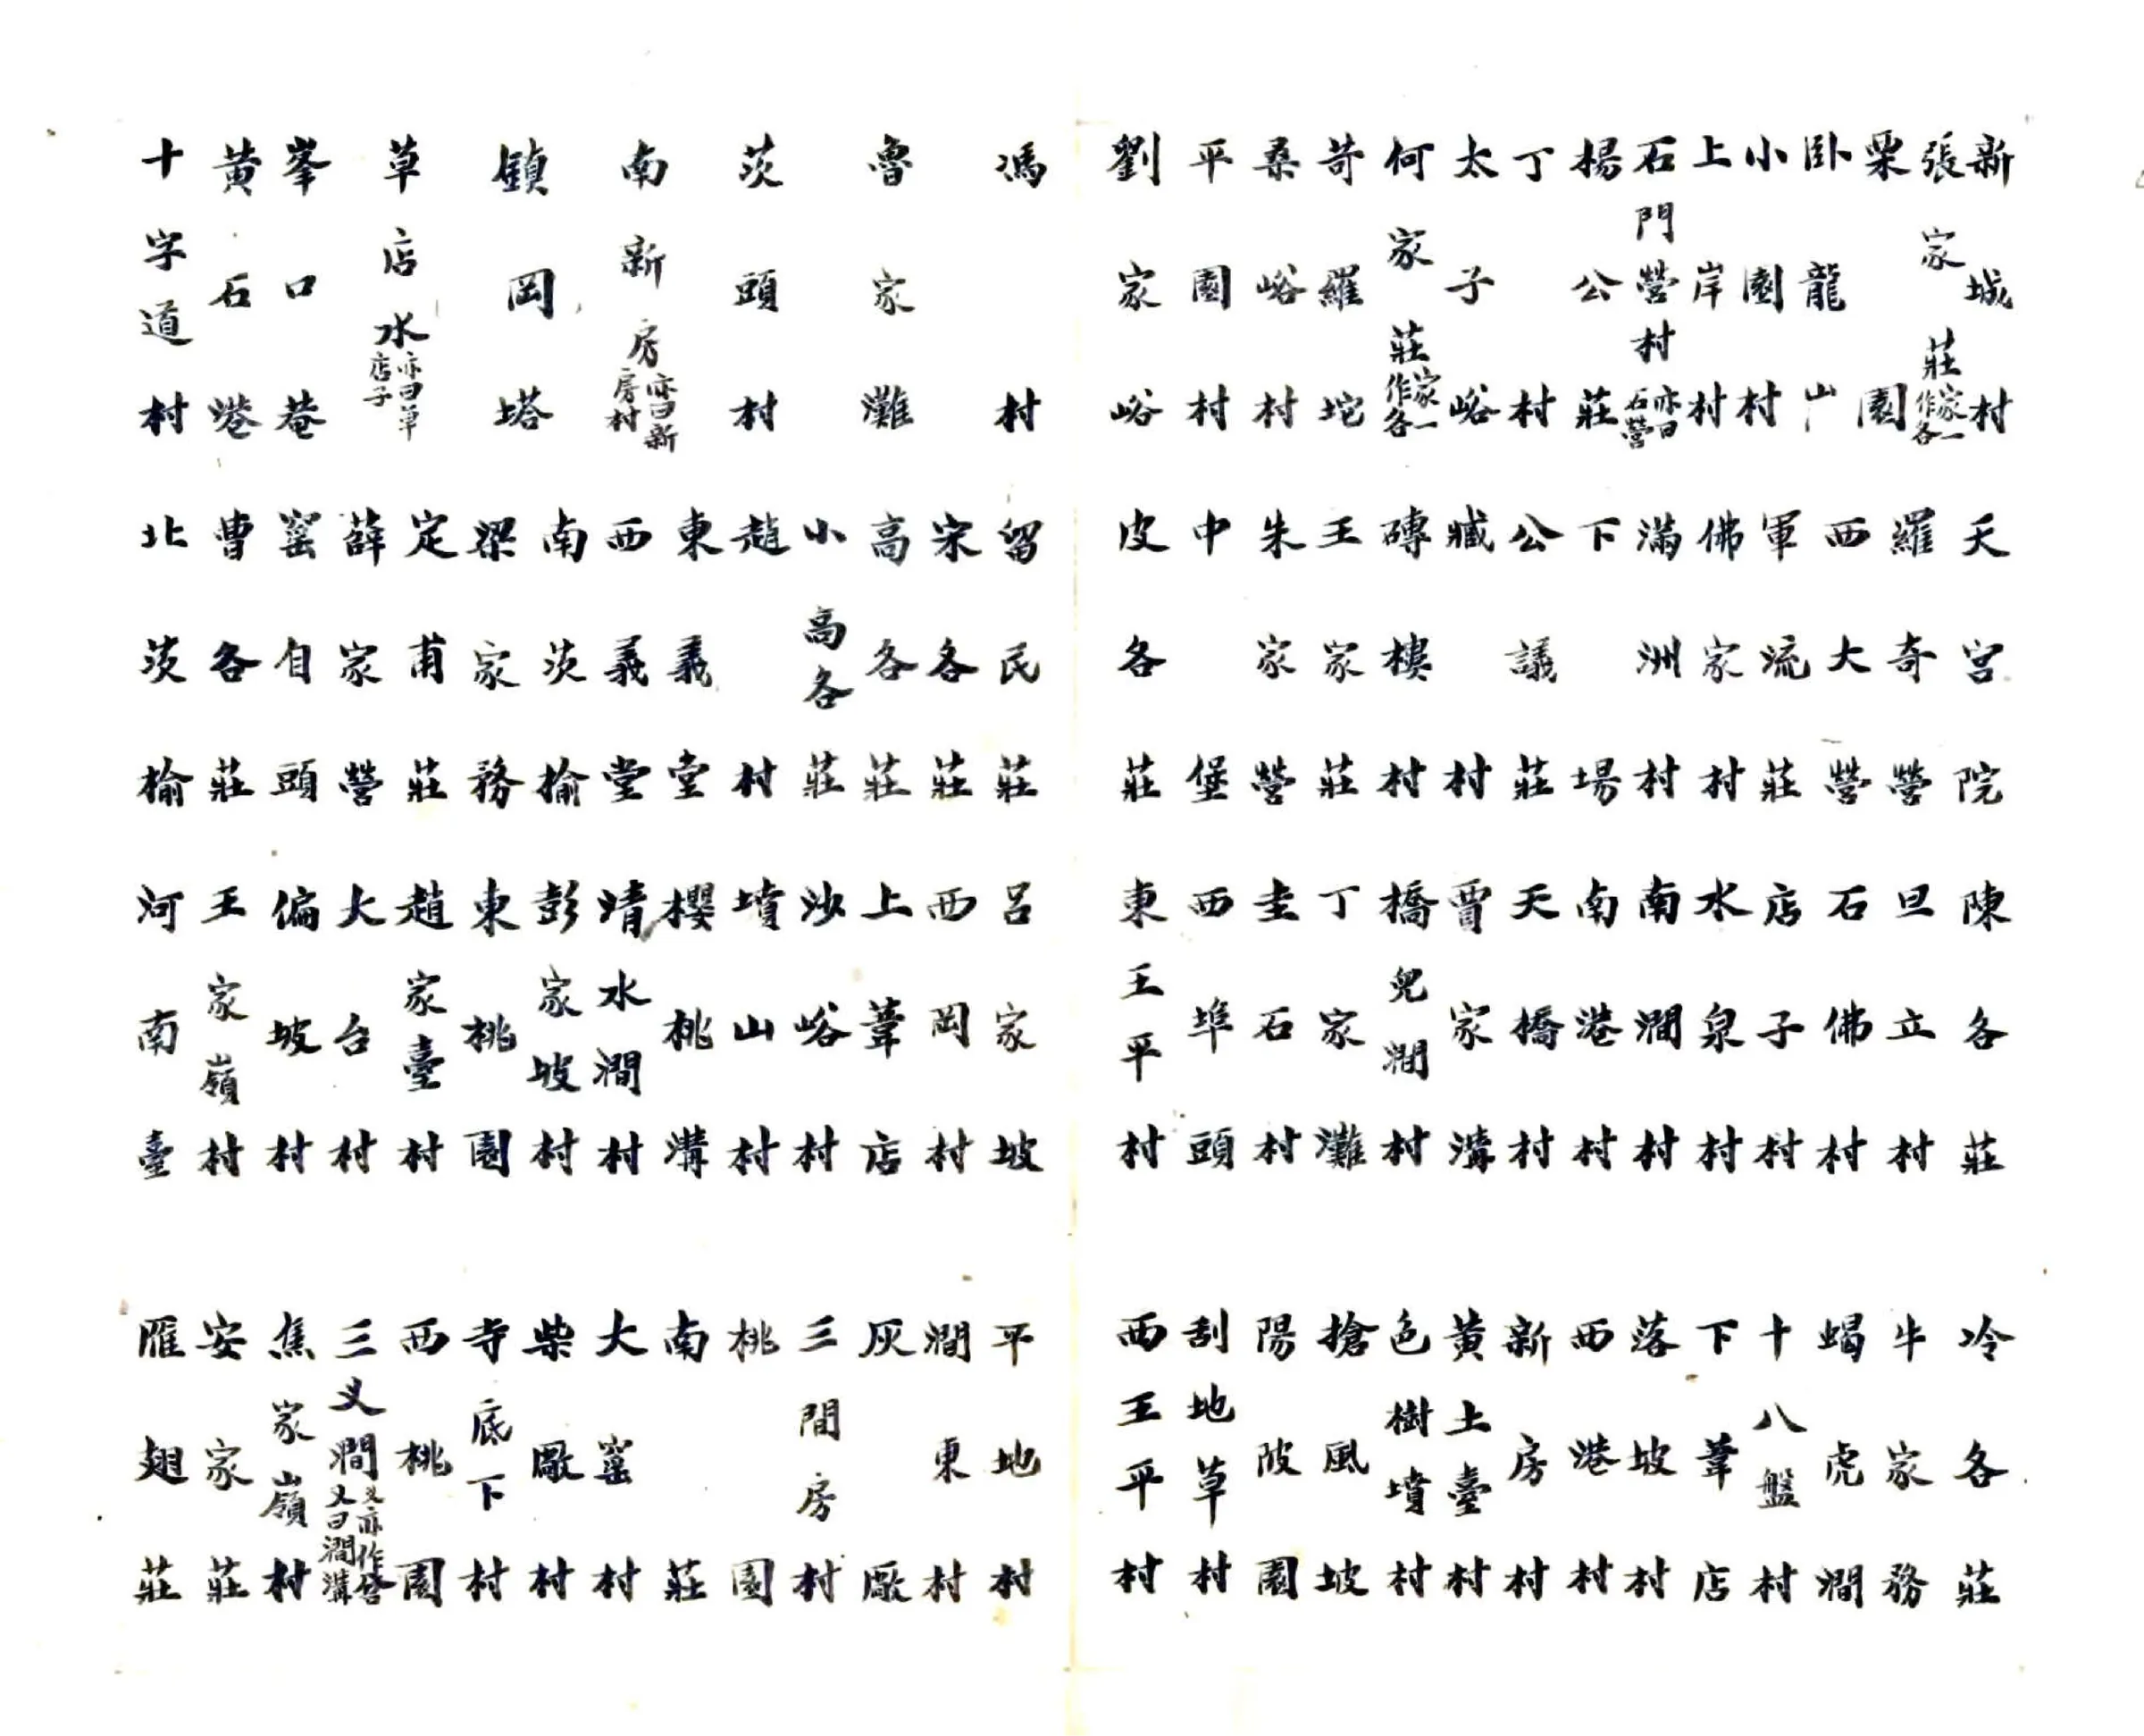 新城村
張家莊家一作各
栗園
臥龍山
小園村
上岸村
石門營村亦曰石營
楊公莊
丁村
太子峪
何家莊家一作各
苛羅坨
桑峪村
平園村
劉家峪
天宮院
羅奇營
西大營
軍流莊
佛家村
滿洲村
下場
公議莊
臧村
磚樓村
王家莊
朱家營
中堡
皮各莊
陳各莊
旦立村
石佛村
店子村
水泉村
南澗村
南港村
天橋村
賈家溝
橋兒澗村
丁家灘
圭石村
西埠頭
東王平村
冷各莊
牛家務
蝎虎澗
十八盤村
下葦店
落坡村
西港村
新房村
黃土臺村
色樹墳村
搶風坡
陽陂園
刮地草村
西王平村
馮村
魯家灘
茨頭村
南新房亦曰新房村
鎮岡塔
草店水亦曰草店子
峯口菴
黃石港
十字道村
留民莊
宋各莊
高各莊
小高各莊
趙村
東義堂
西義堂
南茨榆
梁家務
定甫莊
薛家營
窰自頭
曹各莊
北茨榆
呂家坡
西岡村
上葦店
沙峪村
墳山村
櫻桃溝
清水澗村
彭家坡村
東桃園
趙家臺村
大台村
偏坡村
王家嶺村
河南臺
平地村
澗東村
灰廠
三間房村
桃園
南莊
大窰村
柴廠村
寺底下村
西桃園
三义澗义亦作岔又曰澗溝
焦家嶺村
安家莊
雁翅莊